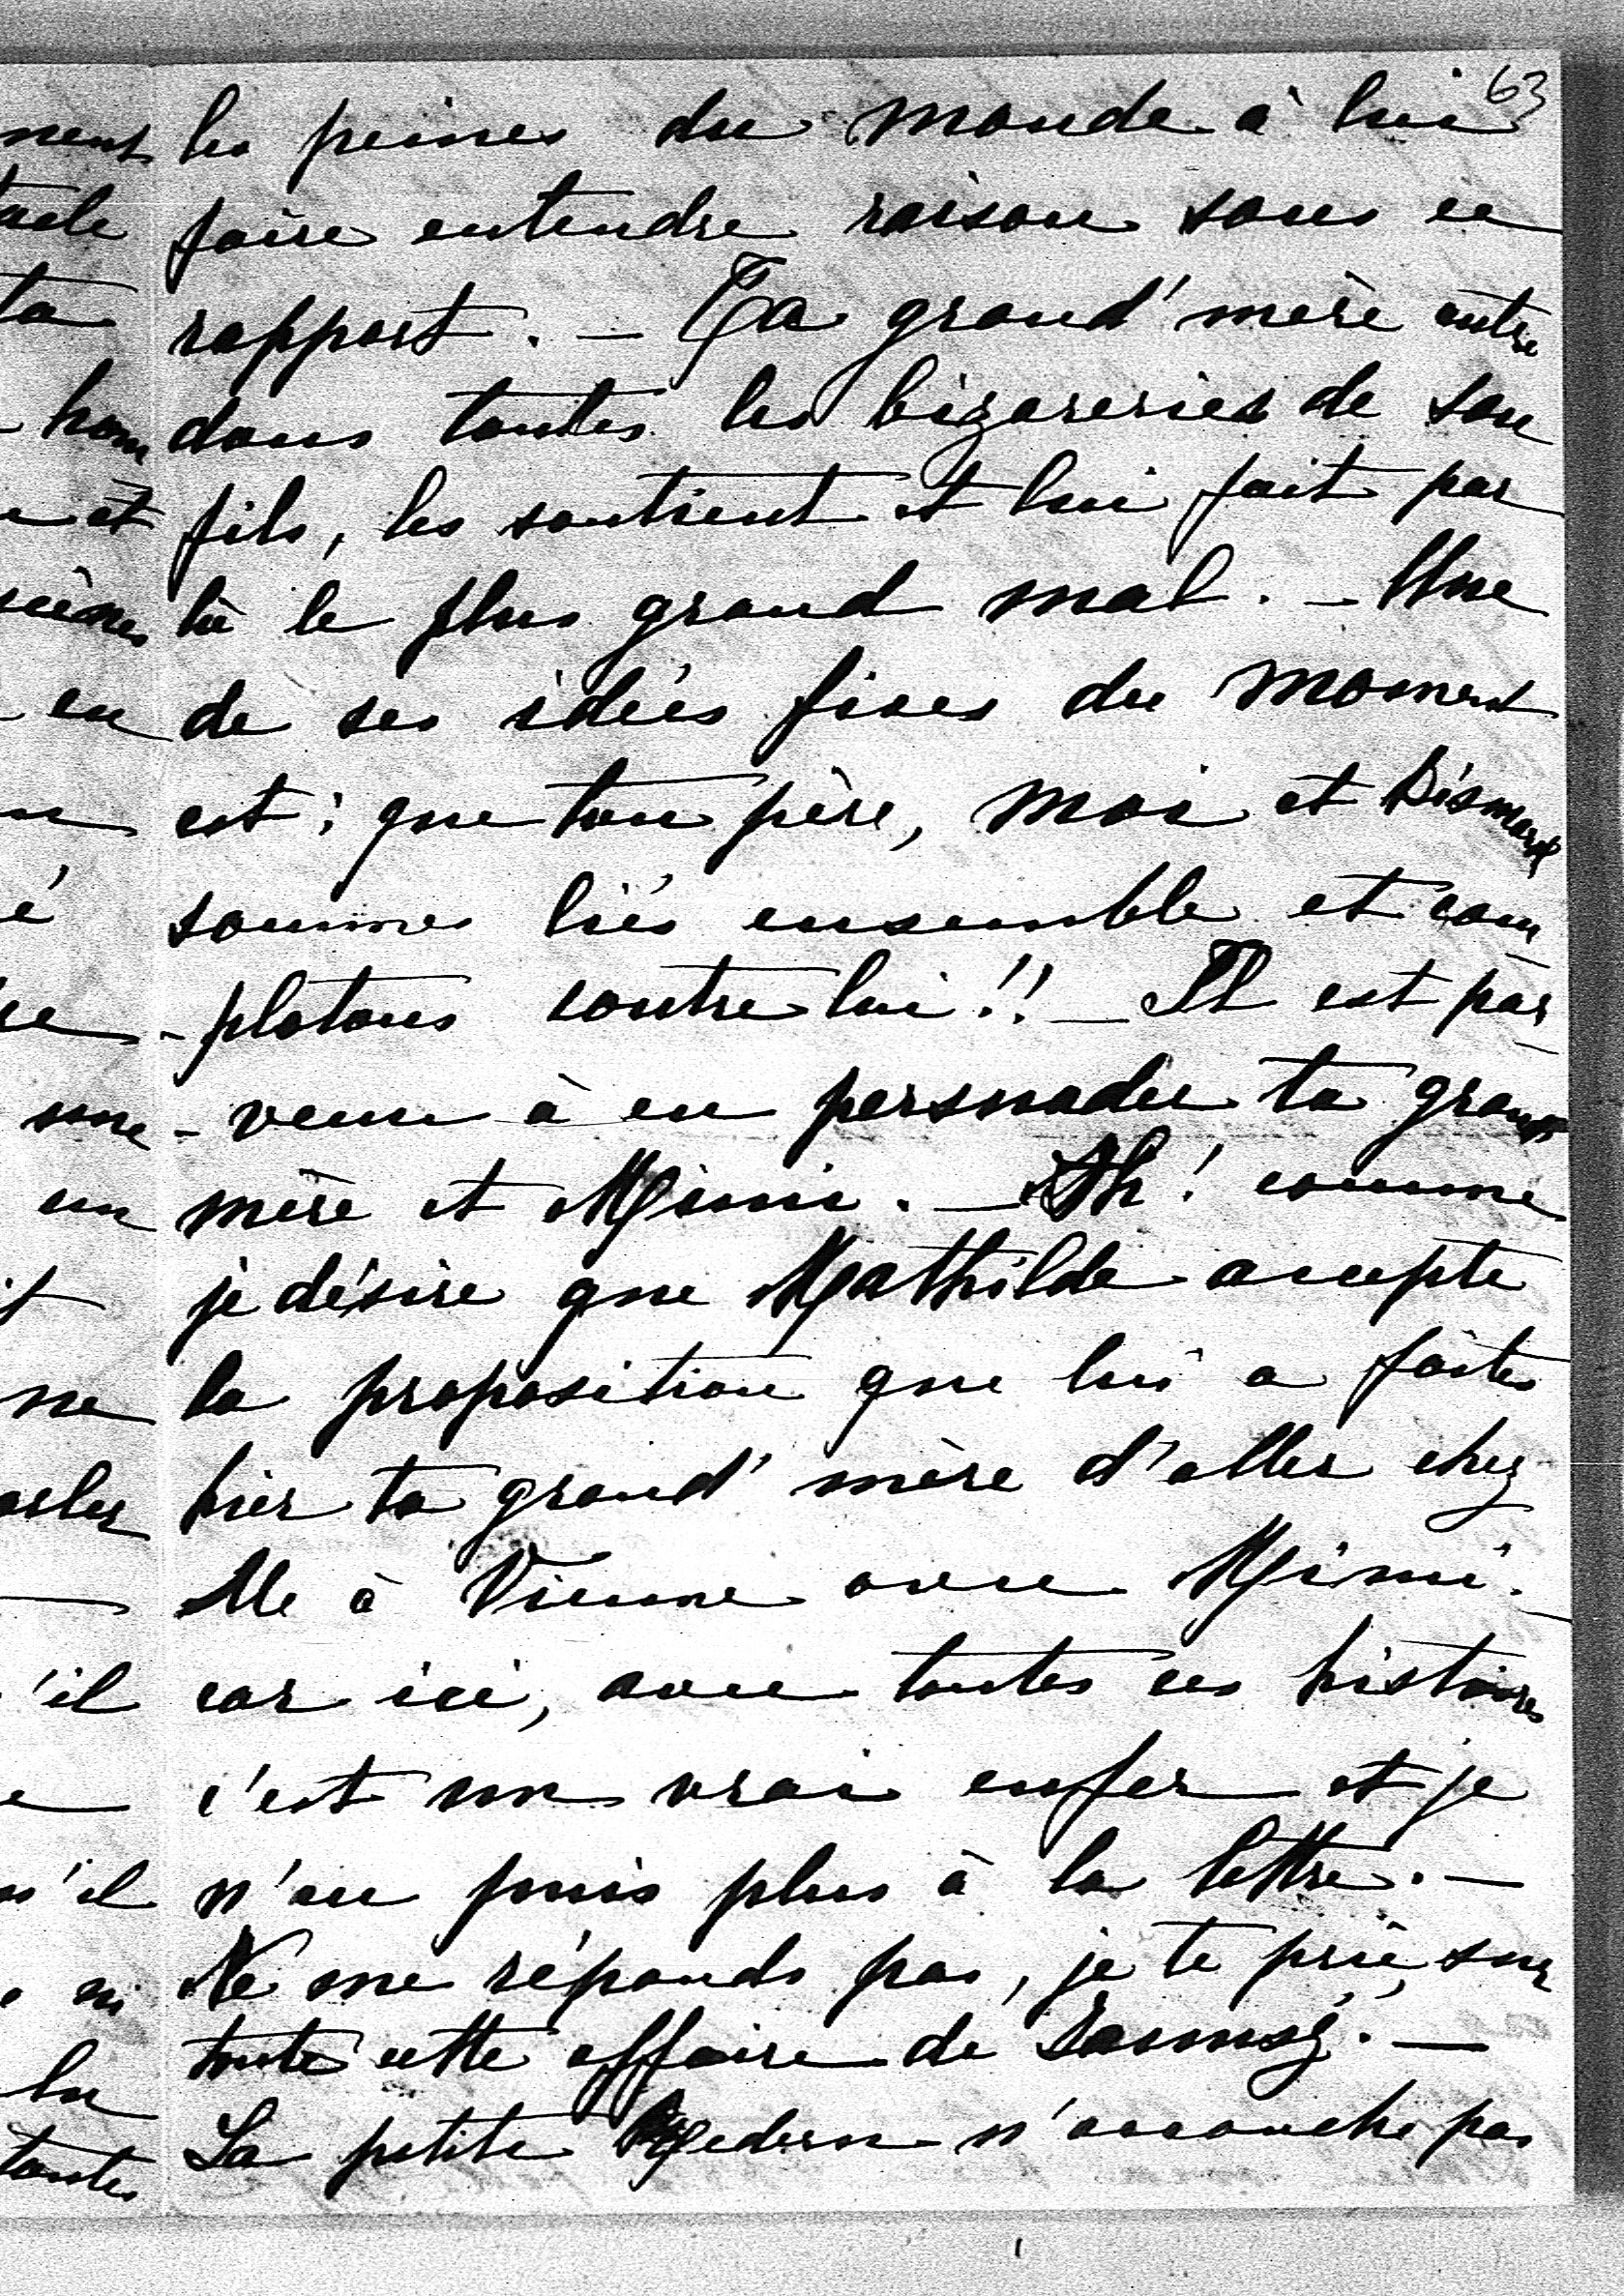 63
les peines du monde à lui
faire entendre raison sous ce
rapport. — Ta grand'mère entre
dans toutes les bizareries de son
fils, les soutient et lui fait par
là le plus grand mal. — Une
de ses idées fixes du moment
est: que ton père, moi et Bismark
sommes liés ensemble et com
-plotons contre lui!! — Il est par
-venu à en persuader ta grand
mère et Mimi. — Ah! comme
je désire que Mathilde accepte
la proposition que lui a faite
hier ta grand'mère d'aller chez
elle à Vienne avec Mimi. —
car ici, avec toutes ces histoires
c'est un vrai enfer et je
n'en puis plus à la lettre. —
Ne me réponds pas, je te prie, sur
toute cette affaire de —
La petite n'accouche pas